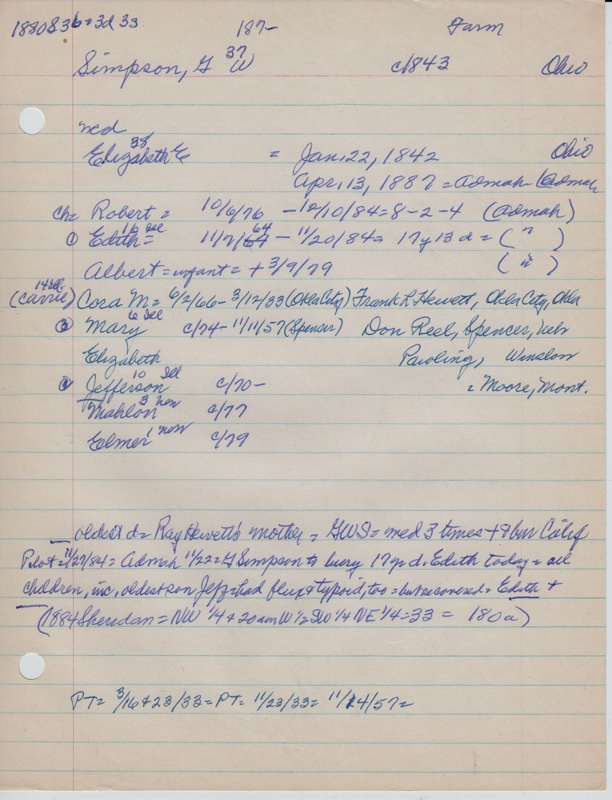 1880836=3d 33 187- Farm
Simpson, G W 37 c/1843 Ohio
med
Elizabeth E 38 = Jan. 22, 1842 Ohio
Apr. 13, 1887 = admah (admah
ch= Robert = 10/6/76 - 12/10/84 = 8-2-4 (admah)
① Edith = 16 Ill 11/7/64 - 11/20/84 = 17y 13d = ( " )
Albert = infant = + 3/9/79 ( " )
(Carrie) 14 Ill Cora M = 6/2/66 - 3/12/33 (Okla City) Frank L Hewett, Okla City, Okla
③ Mary 6 Ill c/74 - 11/11/57 (Spencer) Don Reel, Spencer, Neb
Elizabeth Pawling, Winslow
② Jefferson 10 Ill c/70- = Moore, Mont.
Mahlon 3 Neb c/77
Elmer 1 Neb c/79
oldest d = Ray Hewett's mother = GWS = med 3 times + & bur Calif
Pilot = 11/27/84 = Admah 11/22 = G Simpson to bury 17 yr d. Edith today = all
children, inc, oldest son Jeff = had flux & typoid, too = but recovered = Edith +
(1884 Sheridan = NW 1/4 + 20 am W 1/2 SW 1/4 NE 1/4 = 33 = 180a)
PT = 3/16 + 23/33 = PT = 11/23/33 = 11/14/57 =